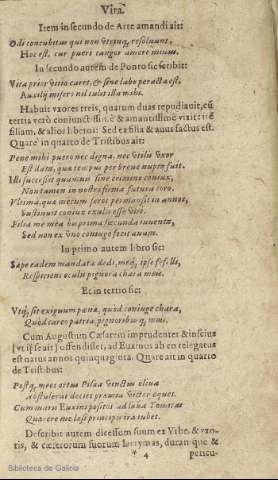 Vita.
Item in secundo de Arte amandi ait:
Odi concubitus qui non utrumque resoluunt,
Hoc est, cur pueri tangar amore minus.
In secundo autem de Ponto sic scribit:
Vita prior vitio caret, & sine labe peracta est,
Auxilij misero nil tulit illa mihi.
Habuit vxores treis, quarum duas repudiauit, cū
tertia verò coniunctiss. & amantissimè vixit:
filiam, & alios liberos: Sed ex filia & auus factus est.
Quare in quarto de Tristibus ait:
Pene mihi puero nec digna, nec vtilis vxor
Est data, quæ tempus per breue nupta fuit.
Illi successit quamuis sine crimine coniux,
Non tamen in nostro firma futura toro.
Vltima, quæ mecum seros permansit in annos,
Sustinuit coniux exulis esse viri.
Filia me mea bis prima fœcunda iuuenta,
Sed non ex vno coniuge fecit auum.
In primo autem libro sic:
Sæpe eadem mandata dedi, meque ipse fefelli,
Respiciens oculis pignora chara meis.
Et in tertio sic:
Vtque sit exiguum pœna, quòd coniuge chara,
Quòd caream patria, pignoribusque meis.
Cum Augustum Cæsarem imprudenter & inscius
(vt ipse ait) offendisset, ad Euxinos ab eo relegatus
est natus annos quinquaginta. Quare ait in quarto
de Tristibus:
Postque meos ortus Pisæa vinctus oliua
Abstulerat decies præmia victor eques.
Cum maris Euxini positos ad læua Tomitas
Quærere me læsi principis ira iubet.
Describit autem discessum suum ex Vrbe, & vxo-
ris, & cæterorum suorum lacrymas, durán que &
* 4
pericu-
Biblioteca de Galicia